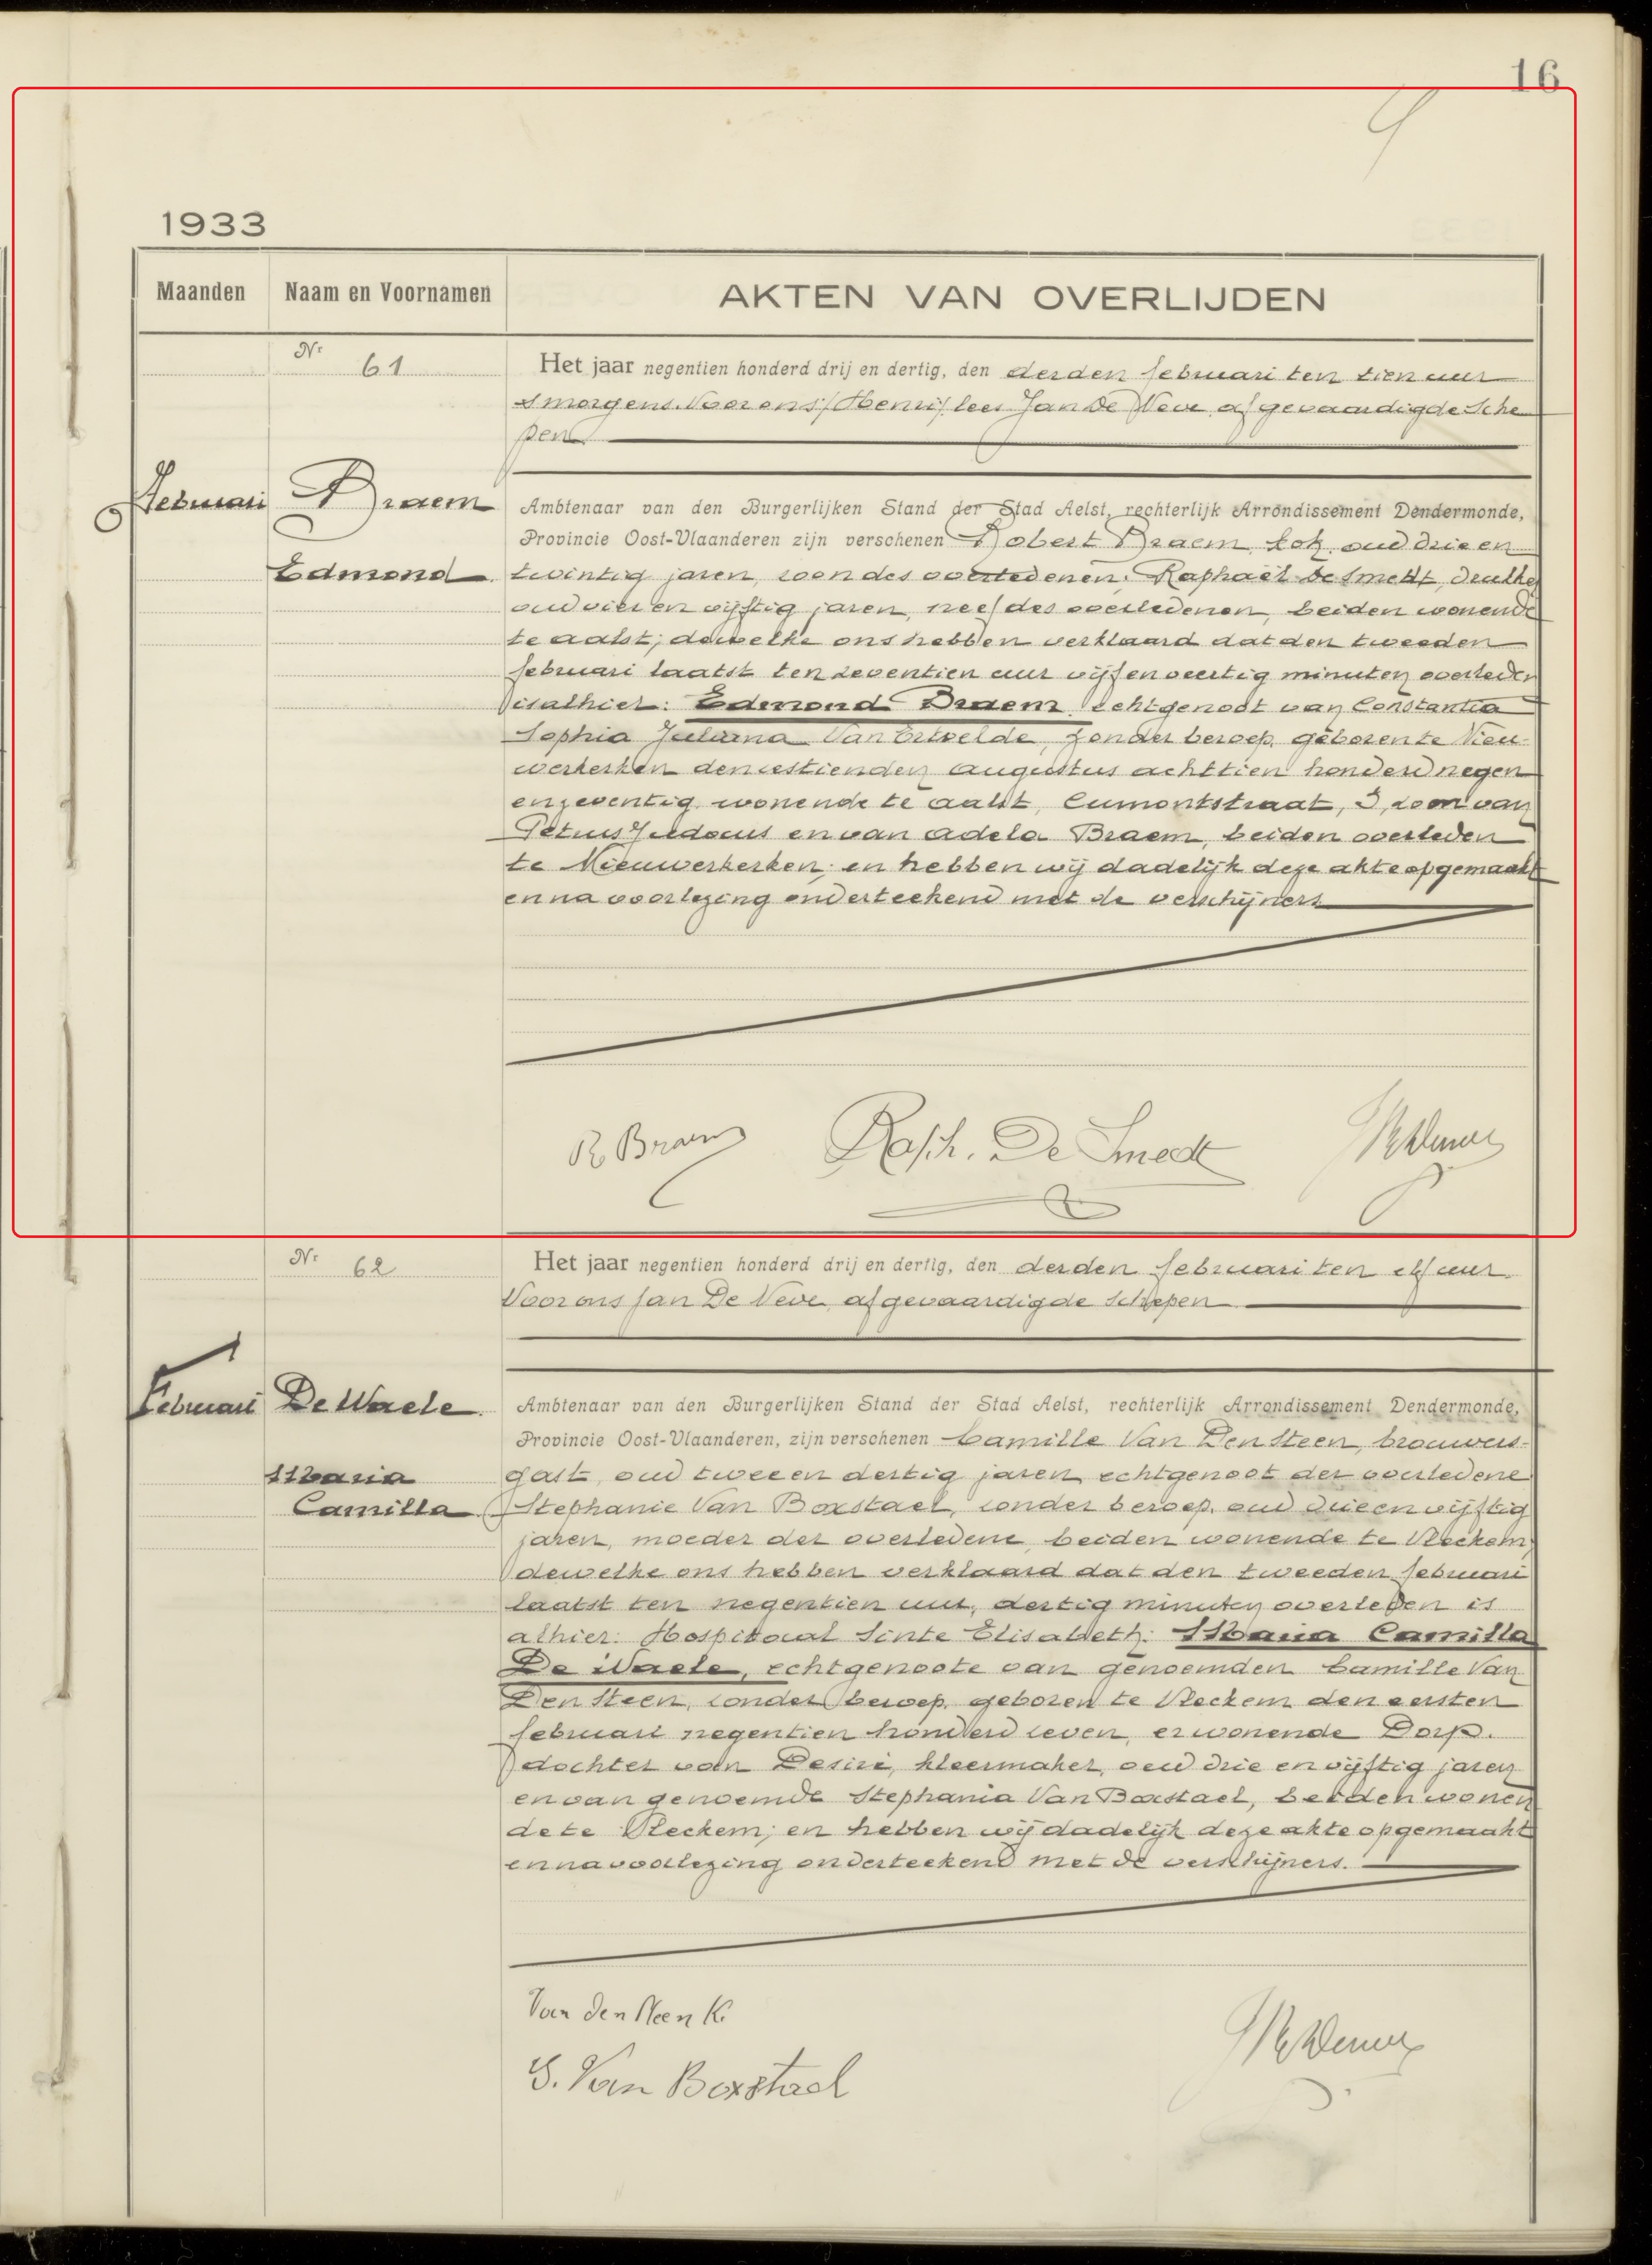 16
1933
Maanden Naam en Voornamen AKTEN VAN OVERLIJDEN
Nr 61
Het jaar negentien honderd drij en dertig, den derden februari ten tien uur
smorgens. Voor ons /Henri/ lees Jan De Neve, afgevaardigde Sche
pen
Februari Braem
Edmond
Ambtenaar van den Burgerlijken Stand der Stad Aelst, rechterlijk Arrondissement Dendermonde,
Provincie Oost-Vlaanderen zijn verschenen Robert Braem, kok, oud drie en
twintig jaren, zoon des overledenen; Raphaël De Smedt,
oud vier en vijftig jaren, neef des overledenen, beiden wonende
te Aalst; dewelke ons hebben verklaard dat den tweeden
februari laatst ten zeventien uur vijf en veertig minuten overleden
is alhier: Edmond Braem, echtgenoot van Constantia
Sophia Juliana Van Ertvelde, zonder beroep, geboren te Nieu-
werkerken den zestienden Augustus achttien honderd negen
en zeventig, wonende te Aalst, Cumontstraat, 3, zoon van
Petrus Judocus en van Adela Braem, beiden overleden
te Nieuwerkerken; en hebben wij dadelijk deze akte opgemaakt
en na voorlezing onderteekend met de verschijners
R Braem Raph. De Smedt
Nr 62
Het jaar negentien honderd drij en dertig, den derden februari ten elf uur.
Voor ons Jan De Neve, afgevaardigde Schepen
Februari De Waele
Maria
Camilla
Ambtenaar van den Burgerlijken Stand der Stad Aelst, rechterlijk Arrondissement Dendermonde,
Provincie Oost-Vlaanderen, zijn verschenen Camille Van Den Steen, brouwers-
gast, oud twee en dertig jaren, echtgenoot der overledene
Stephanie Van Boxstael, zonder beroep, oud drie en vijftig
jaren, moeder der overledene, beiden wonende te Vleckem;
dewelke ons hebben verklaard dat den tweeden februari
laatst ten negentien uur, dertig minuten overleden is
alhier: Hospitaal Sinte Elisabeth: Maria Camilla
De Waele, echtgenoote van genoemden Camille Van
Den Steen, zonder beroep, geboren te Vleckem den eersten
februari negentien honderd zeven, er wonende Dorp.
dochter van Desiré, kleermaker, oud drie en vijftig jaren
en van genoemde Stephania Van Boxstael, beiden wonen
de te Vleckem; en hebben wij dadelijk deze akte opgemaakt
en na voorlezing onderteekend met de verschijners.
Van den Steen K.
S. Van Boxstael